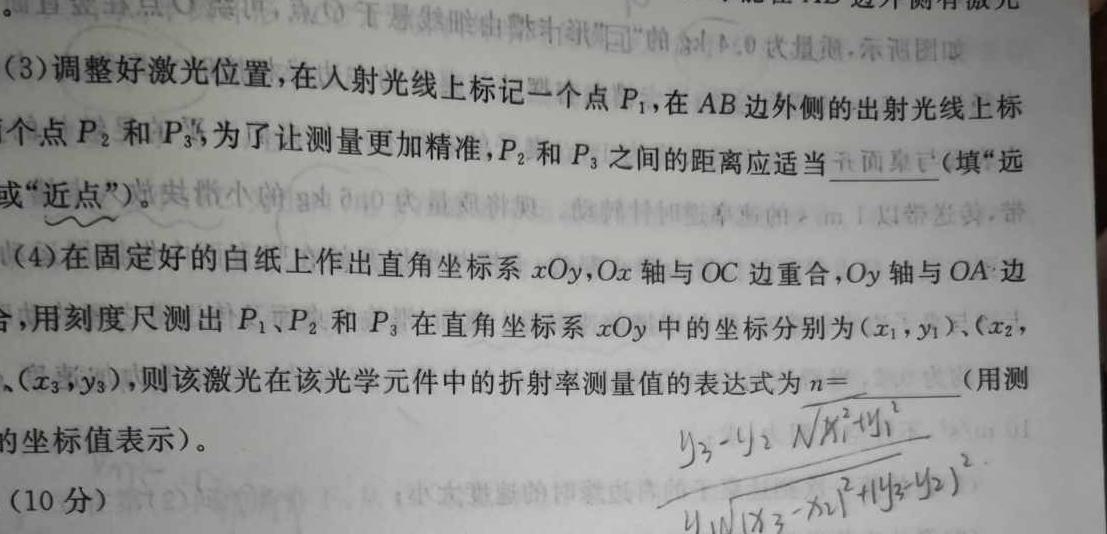 (3)调整好激光位置,在入射光线上标记一个点 P₁,在 AB 边外侧的出射光线上标
个点 P₂ 和 P₃,为了让测量更加精准,P₂ 和 P₃ 之间的距离应适当______(填“远
或“近点”)。
(4)在固定好的白纸上作出直角坐标系 xOy,Ox 轴与 OC 边重合,Oy 轴与 OA 边
合,用刻度尺测出 P₁、P₂ 和 P₃ 在直角坐标系 xOy 中的坐标分别为(x₁,y₁)、(x₂,
、(x₃,y₃),则该激光在该光学元件中的折射率测量值的表达式为 n=______(用测
的坐标值表示)。
y₃-y₂ √x₁²+y₁²
y₁√(x₃-x₂)²+(y₃-y₂)²
(10 分)